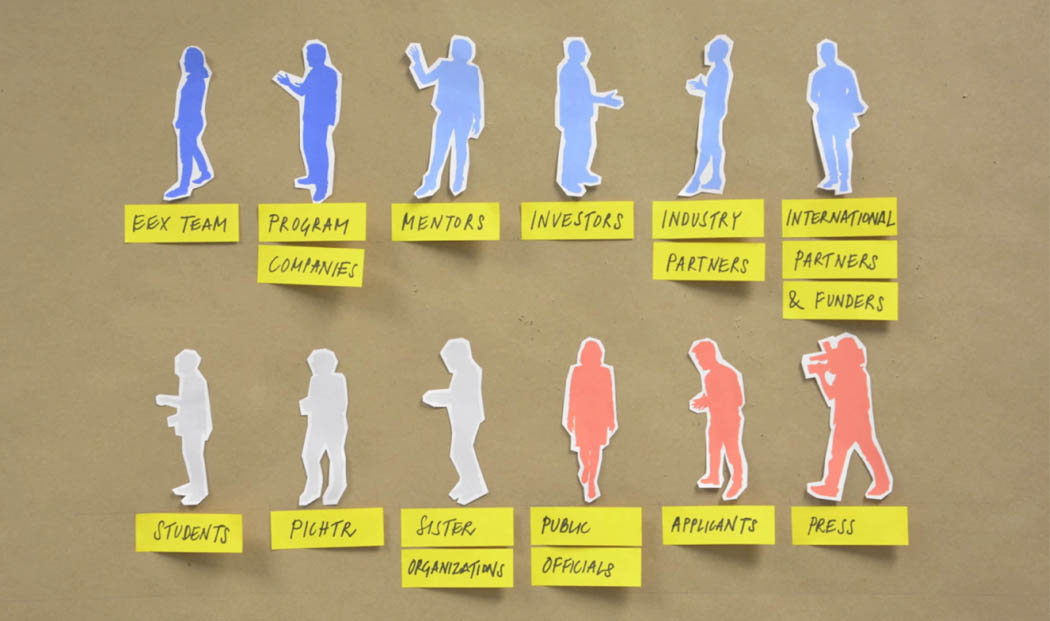 EEX TEAM
PROGRAM
COMPANIES
MENTORS
INVESTORS
INDUSTRY
PARTNERS
INTERNATIONAL
PARTNERS
& FUNDERS
STUDENTS
PICHTR
SISTER
ORGANIZATIONS
PUBLIC
OFFICIALS
APPLICANTS
PRESS